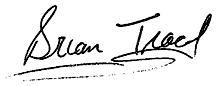 Brian Tracy